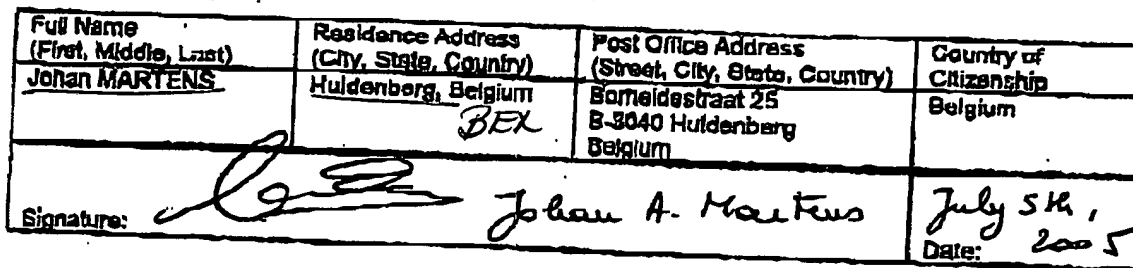 Full Name
(First, Middle, Last)
Residence Address
(City, State, Country)
Post Office Address
(Street, City, State, Country)
Country of
Citizenship
Johan MARTENS
Huldenberg, Belgium
BEX
Bomeidestraat 25
B-3040 Huldenberg
Belgium
Belgium
Signature:
Johan A. Martens
July 5th,
2005
Date: